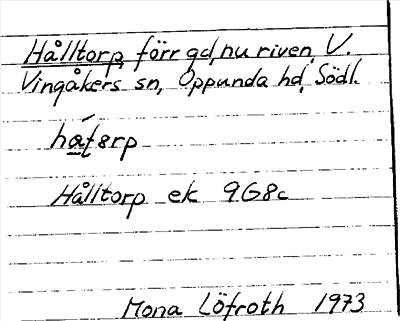 Hålltorp, förr gd, nu riven, V.
Vingåkers sn, Oppunda hd, Södl.
Hålltorp ek 9G8c
Mona Löfroth 1973